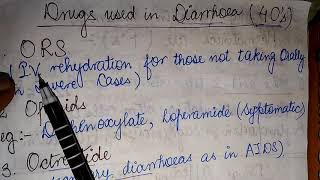 Drugs used in Diarrhoea (4O's)
ORS
(IV rehydration for those not taking Orally
in severe Cases)
2. Opioids
eg:- Diphenoxylate, Loperamide (Symptomatic)
3. Octreotide
diarrhoeas as in AIDS)